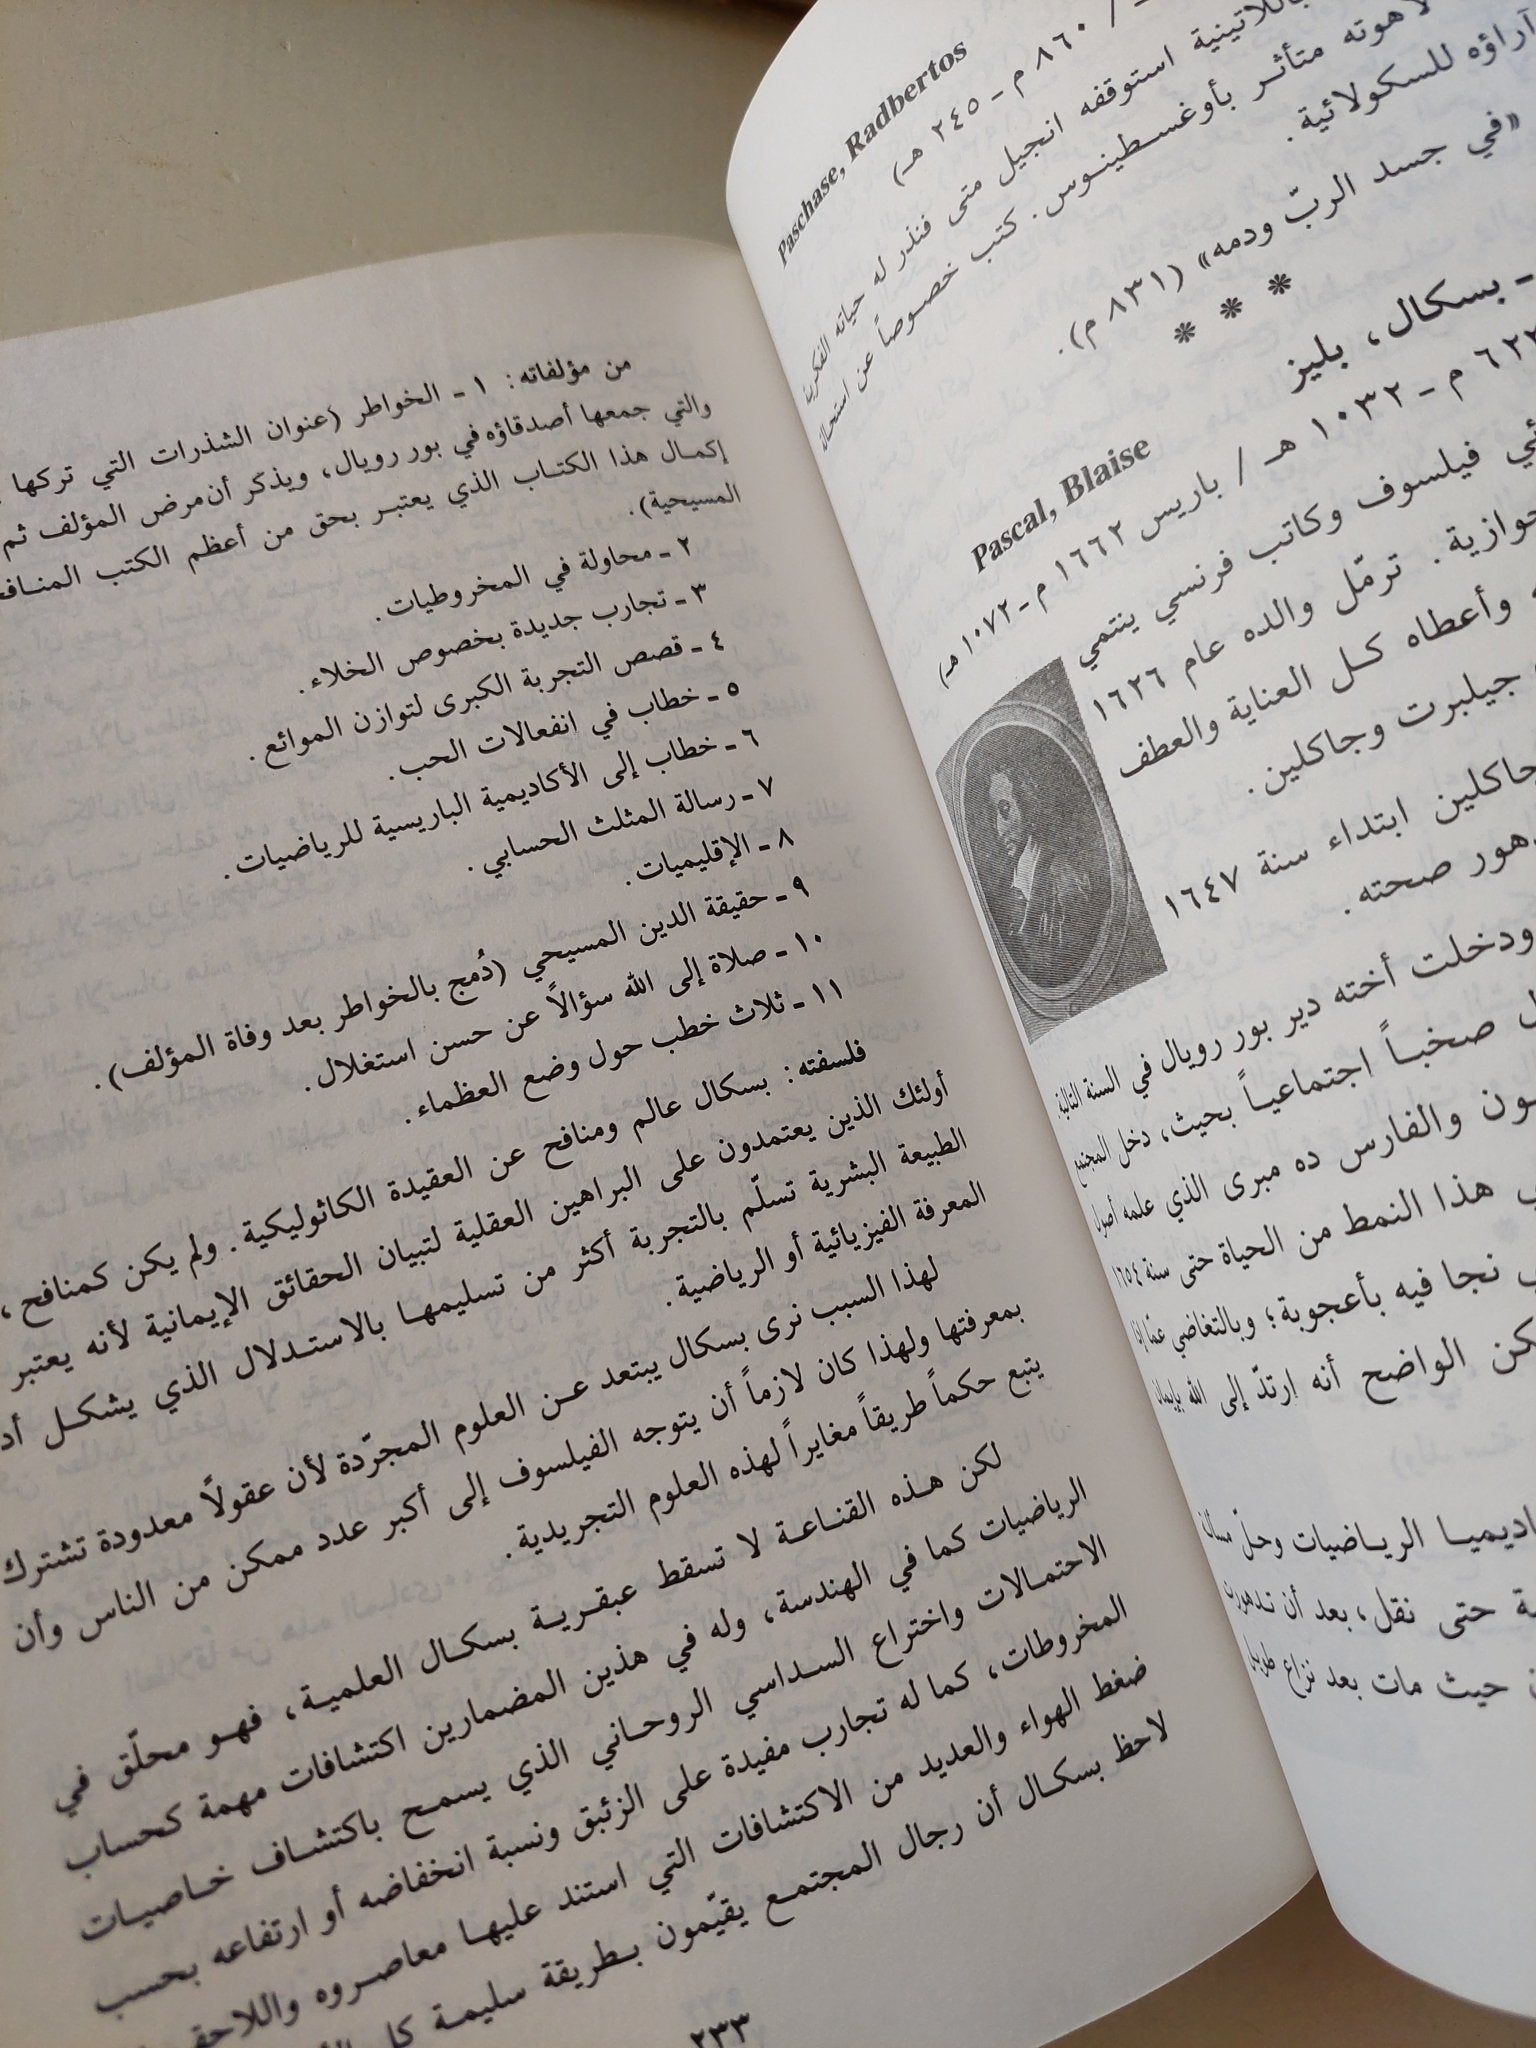 Paschase, Radbertos
/ ٨٦٠ م ـ ٢٤٥ هـ)
باللاتينية استوقفه انجيل متى فنذر له حياته الفكرية
لاهوته متأثر بأوغسطينوس. كتب خصوصاً عن استحالة
آراؤه للسكولائية.
«في جسد الربّ ودمه» (٨٣١ م).
* * *
ـ بسكال، بليز
Pascal, Blaise
م ـ ١٠٣٢ هـ / باريس ١٦٦٢ م ـ ١٠٧٢ هـ)
فيلسوف وكاتب فرنسي ينتمي
ترمّل والده عام ١٦٢٦
وأعطاه كل العناية والعطف
جيلبرت وجاكلين.
جاكلين ابتداء سنة ١٦٤٧
صحته.
ودخلت أخته دير بور رويال في السنة التالية.
صخباً اجتماعياً بحيث، دخل المجتمع
والفارس ده مبرى الذي علمه أصول
هذا النمط من الحياة حتى سنة ١٦٥٤
نجا فيه بأعجوبة؛ وبالتغاضي عمّا إذا
الواضح أنه ارتدّ إلى الله بإيمان
الرياضيات وحلّ مسائل
حتى نقل، بعد أن تدهورت
حيث مات بعد نزاع طويل
من مؤلفاته: ١ ـ الخواطر (عنوان الشذرات التي تركها
والتي جمعها أصدقاؤه في بور رويال، ويذكر أن مرض المؤلف ثم
إكمال هذا الكتاب الذي يعتبر بحق من أعظم الكتب
المسيحية).
٢ ـ محاولة في المخروطيات.
٣ ـ تجارب جديدة بخصوص الخلاء.
٤ ـ قصص التجربة الكبرى لتوازن الموائع.
٥ ـ خطاب في انفعالات الحب.
٦ ـ خطاب إلى الأكاديمية الباريسية للرياضيات.
٧ ـ رسالة المثلث الحسابي.
٨ ـ الإقليميات.
٩ ـ حقيقة الدين المسيحي (دُمج بالخواطر بعد وفاة المؤلف).
١٠ ـ صلاة إلى الله سؤالاً عن حسن استغلال.
١١ ـ ثلاث خطب حول وضع العظماء.
فلسفته: بسكال عالم ومنافح عن العقيدة الكاثوليكية. ولم يكن كمنافح،
أولئك الذين يعتمدون على البراهين العقلية لتبيان الحقائق الإيمانية لأنه يعتبر
الطبيعة البشرية تسلّم بالتجربة أكثر من تسليمها بالاستدلال الذي يشكل
المعرفة الفيزيائية أو الرياضية.
لهذا السبب نرى بسكال يبتعد عن العلوم المجرّدة لأن عقولاً معدودة تشترك
بمعرفتها ولهذا كان لازماً أن يتوجه الفيلسوف إلى أكبر عدد ممكن من الناس وأن
يتبع حكماً طريقاً مغايراً لهذه العلوم التجريدية.
لكن هذه القناعة لا تسقط عبقرية بسكال العلمية، فهو محلّق في
الرياضيات كما في الهندسة، وله في هذين المضمارين اكتشافات مهمة كحساب
الاحتمالات واختراع السداسي الروحاني الذي يسمح باكتشاف خاصيات
المخروطات، كما له تجارب مفيدة على الزئبق ونسبة انخفاضه أو ارتفاعه بحسب
ضغط الهواء والعديد من الاكتشافات التي استند عليها معاصروه
لاحظ بسكال أن رجال المجتمع يقيّمون بطريقة سليمة كل
٢٣٣